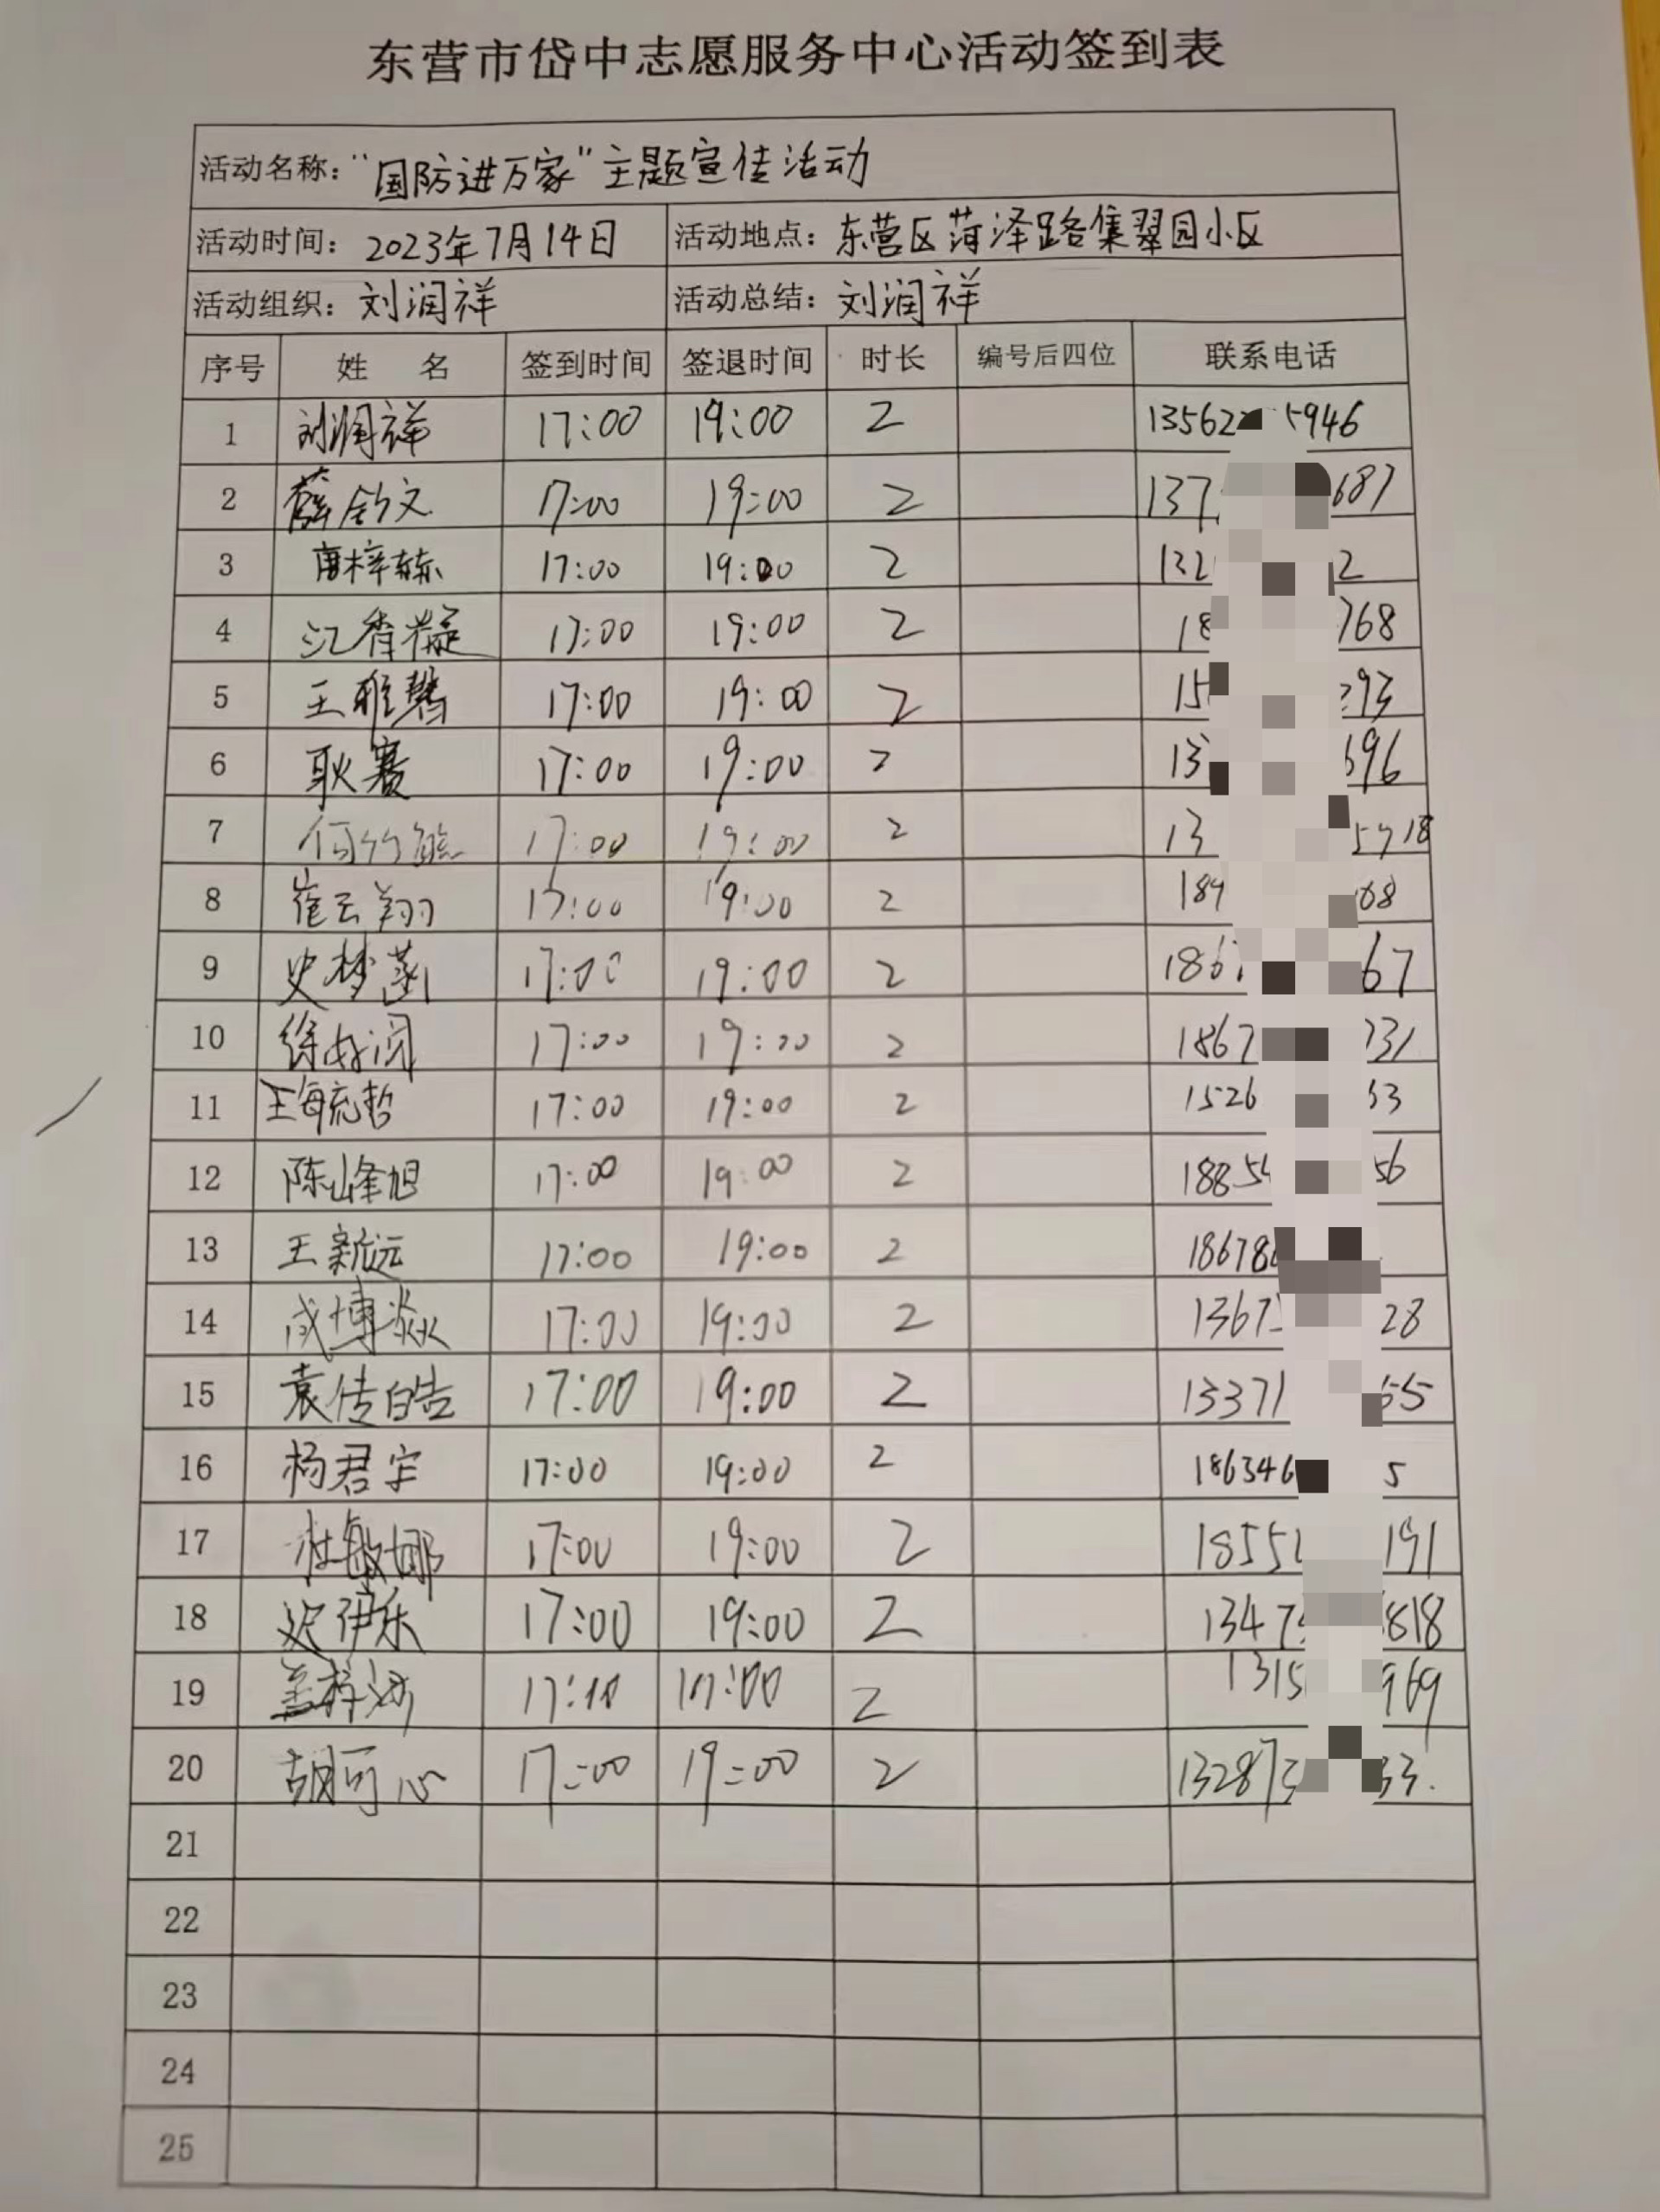 东营市岱中志愿服务中心活动签到表
活动名称：“国防进万家”主题宣传活动
活动时间：2023年7月14日 活动地点：东营区菏泽路集翠园小区
活动组织：刘润祥 活动总结：刘润祥
序号 姓 名 签到时间 签退时间 时长 编号后四位 联系电话
1 刘润祥 17:00 19:00 2 13562 5946
2 薛钧文 17:00 19:00 2 137 687
3 唐梓赫 17:00 19:00 2 132 2
4 江香凝 17:00 19:00 2 18 768
5 王雅馨 17:00 19:00 2 15 293
6 耿赛 17:00 19:00 2 13 696
7 何竹 17:00 19:00 2 13 5718
8 崔云翔 17:00 19:00 2 189 68
9 史梦菡 17:00 19:00 2 186 67
10 徐 17:00 19:00 2 1867 731
11 王海 哲 17:00 19:00 2 1526 53
12 陈峰旭 17:00 19:00 2 1885 56
13 王新远 17:00 19:00 2 18678
14 成博焱 17:00 19:00 2 1367 28
15 袁传皓 17:00 19:00 2 13371 55
16 杨君宇 17:00 19:00 2 186346 5
17 杜敏娜 17:00 19:00 2 1855 191
18 史伊乐 17:00 19:00 2 1347 818
19 盖梓涵 17: 00 2 1315 969
20 胡可心 17:00 19:00 2 13287 33.
21
22
23
24
25